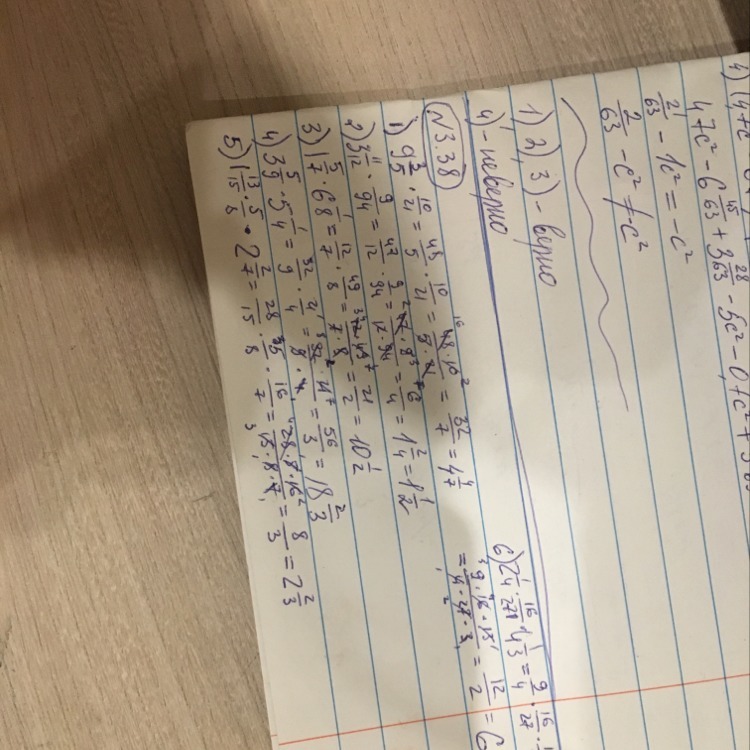 4) (4,7c
47c² - 6 45/63 + 3 28/63 - 5c² - 0,7c² +
2/63 - 1c² = -c²
2/63 - c² ≠ -c²
1) 2) 3) - верно
4) - неверно
№3.38
1) 9 3/5 · 10/21 = 48/5 · 10/21 = 48·10/5·21 = 32/7 = 4 4/7
2) 3 11/12 · 9/94 = 47/12 · 9/94 = 47·9/12·94
3) 1 5/7 · 6 1/8 = 12/7 · 49/8 = 12·49/7·8 = 21/2 = 10 1/2
4) 3 5/9 · 5 1/4 = 32/9 · 21/4 = 32·21/9·4 = 56/3 = 18 2/3
5) 1 13/15 · 5/8 · 2 2/7 = 28/15 · 5/8 · 16/7 = 28·5·16/15·8·7 = 8/3 = 2 2/3
6) 2 1/4 · 16/27 · 4 1/3 = 9/4 · 16/27 ·
= 12/2 = 6